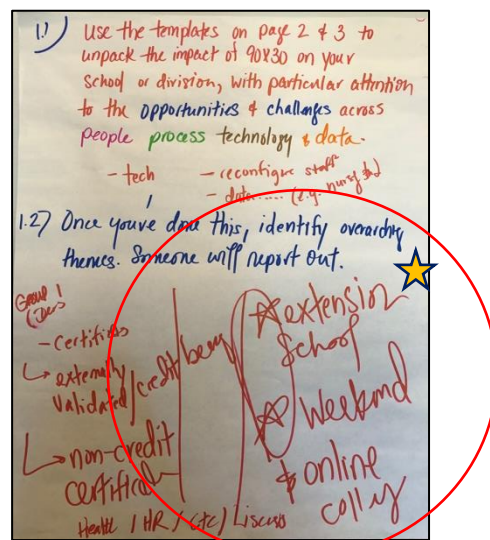 1.) Use the templates on page 2 & 3 to
unpack the impact of 90x30 on your
school or division, with particular attention
to the opportunities & challenges across
people process technology & data.
- tech
- reconfigure staff
- data..... (e.g. nursing
1.2) Once youve done this, identify overarching
themes. Someone will report out.
Group 1
- certificates
externally
validated
/credit
non-credit
certificate
Health / HR / etc /
extension
School
Weekend
& online